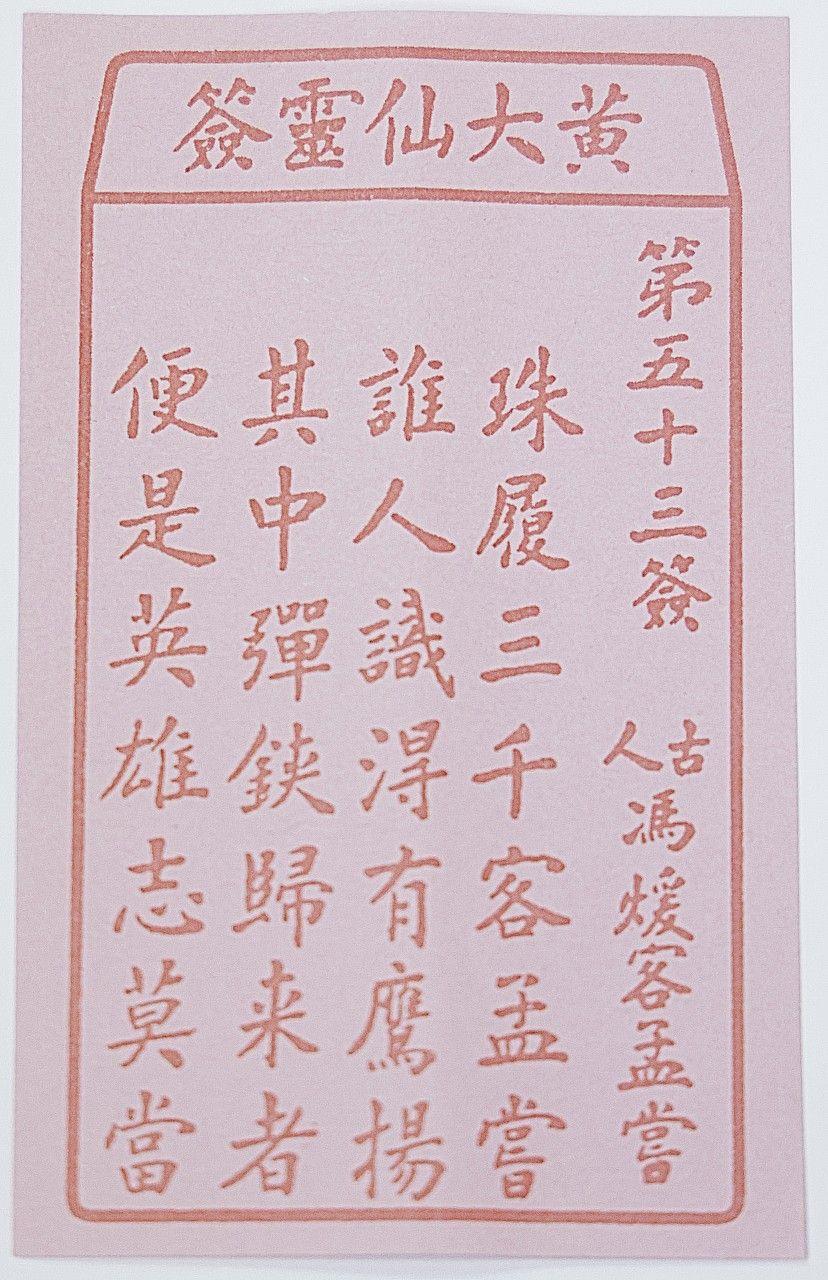 黄大仙靈簽
第五十三簽 古人 馮煖客孟嘗
珠履三千客孟嘗
誰人識得有鷹揚
其中彈鋏歸来者
便是英雄志莫當